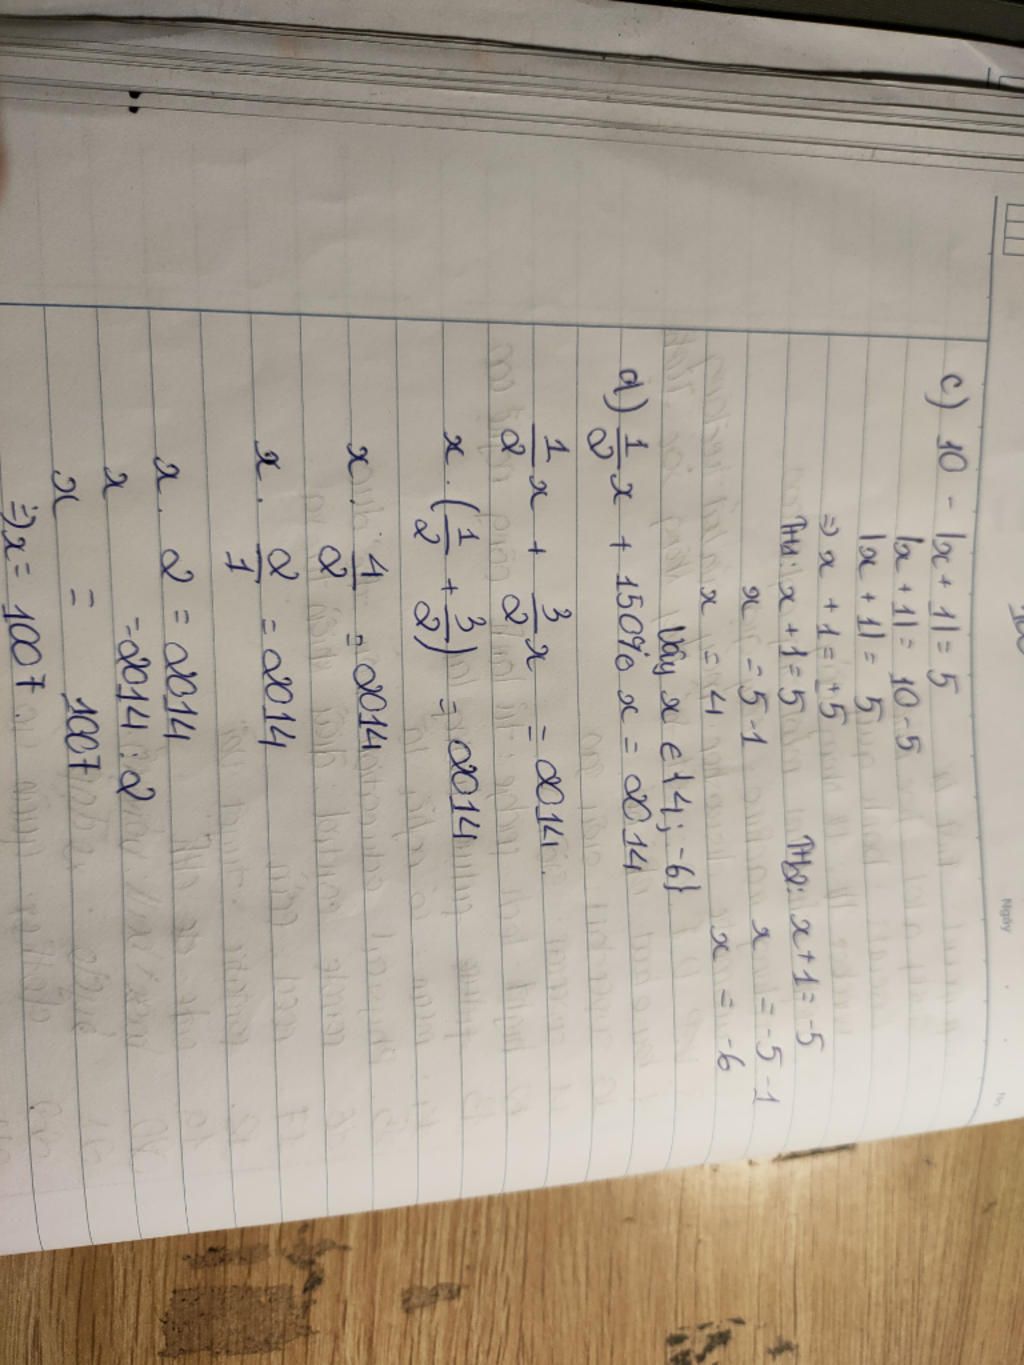 Ngày
No
c) 10 - |x + 1| = 5
|x + 1| = 10 - 5
|x + 1| = 5
=> x + 1 = ±5
TH1: x + 1 = 5 TH2: x + 1 = -5
x = 5 - 1 x = -5 - 1
x = 4 x = -6
Vậy x ∈ {4; -6}
d) 1/2 x + 150% x = 2014
1/2 x + 3/2 x = 2014.
x . (1/2 + 3/2) = 2014
x . 4/2 = 2014
x . 2/1 = 2014
x . 2 = 2014
x = 2014 : 2
x = 1007
=> x = 1007.